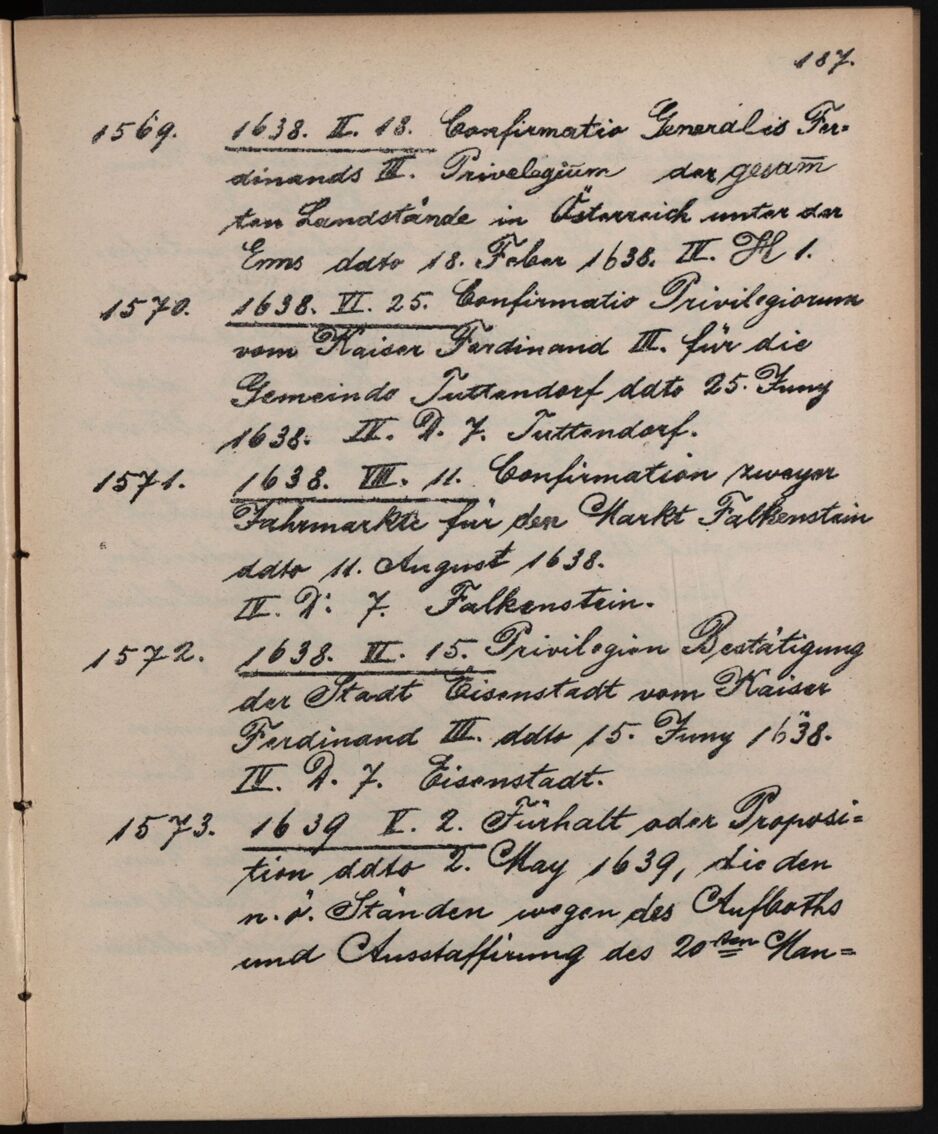 187.
1569. 1638. II. 18. Confirmatio Generalis Fer=
dinands III. Privelegium der gesam̅
ten Landstände in Österreich unter der
Enns ddto 18. Feber 1638. IV. H 1.
1570. 1638. VI. 25. Confirmatio Privilegiorum
vom Kaiser Ferdinand III. für die
Gemeinde Tuttendorf ddto 25. Juny
1638. IV. D. 7. Tuttendorf.
1571. 1638. VIII. 11. Confirmation zweyer
Jahrmarkte für den Markt Falkenstein
ddto 11. August 1638.
IV. D. 7. Falkenstein.
1572. 1638. VI. 15. Privilegien Bestätigung
der Stadt Eisenstadt vom Kaiser
Ferdinand III. ddto 15. Juny 1638.
IV. D. 7. Eisenstadt.
1573. 1639 V. 2. Fürhalt oder Proposi=
tion ddto 2. May 1639, die den
n. ö. Ständen wegen des Aufboths
und Ausstaffirung des 20ten Man=